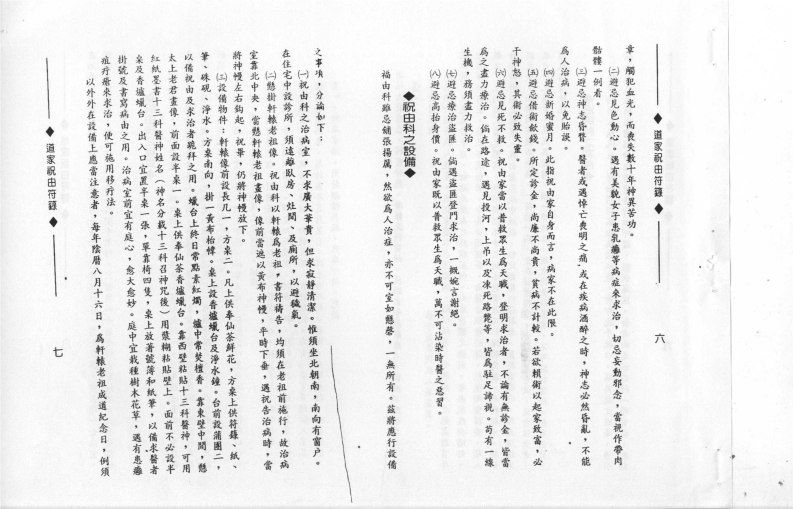 ◆道家祝由符籙◆
六
章，觸犯血光，而喪失數十年神異苦功。
㈡避忌見色動心。遇有美貌女子患乳癰等病症來求治，切忌妄動邪念，當視作帶肉
骷髏一例看。
㈢避忌神志昏瞀。醫者或遇悼亡喪明之痛，或在疾病酒醉之時，神志必然昏亂，不能
爲人治病，以免貽誤。
㈣避忌新婚蜜月。此指祝由家自身而言，病家不在此限。
㈤避忌借術斂錢。所定診金，尚廉不尚貴，貧病不計較。若欲賴術以起家致富，必
干神怒，其術必致失靈。
㈥避忌見死不救。祝由家當以普救眾生爲天職，聲明求治者，不論有無診金，皆當
爲之盡力療治。倘在路途，遇見投河，上吊以及凍死路斃等，皆爲駐足諦視。苟有一線
生機，務須盡力救治。
㈦避忌療治盜匪。倘遇盜匪登門求治，一概婉言謝絕。
㈧避忌高抬身價。祝由家既以普救眾生爲天職，萬不可沾染時醫之惡習。
◆祝由科之設備◆
福由科雖忌鋪張揚厲，然欲爲人治症，亦不可室如懸罄，一無所有。茲將應行設備
之事項，分論如下：
㈠祝由科之治病室，不求廣大華貴，但求寂靜清潔。惟須坐北朝南，南向有窗戶。
在住宅中設診所，須遠離臥房、灶間、及廁所，以避穢氣。
㈡懸掛軒轅老祖像。祝由科以軒轅爲老祖，書符禱告，均須在老祖前施行，故治病
室靠北中央，當懸軒轅老祖畫像，像前當遮以黃布神幔，平時下垂，遇祝告治病時，當
將神幔左右鈎起，祝畢，仍將神幔放下。
㈢設備物件：軒轅像前設長几一，方桌二。凡上供奉仙茶鮮花，方桌上供符籙、紙、
筆、硃硯、淨水。方桌南向，掛一黃布枱幃。桌上設香爐蠟台及淨水鐘。台前設蒲團二，
以備祝由及求治者跪拜之用。蠟台上終日常點素紅燭，爐中常焚檀香。靠東壁中間，懸
太上老君畫像，前面設半桌一。桌上供奉仙茶香爐蠟台。靠西壁粘貼十三科醫神，可用
紅紙墨書十三科醫神姓名（神名分載十三科召神咒後）用漿糊粘貼壁上。面前不必設半
桌及香爐蠟台。出入口宜置半桌一張，單靠椅四隻，桌上放著號簿和紙筆，以備求醫者
掛號及書寫病由之用。治病室前宜有庭心，愈大愈妙。庭中宜栽種樹木花草，遇有患癰
疽疔療來求治，便可施用移疔法。
以外外在設備上應當注意者，每年陰曆八月十六日，爲軒轅老祖成道紀念日，例須
◆道家祝由符籙◆
七